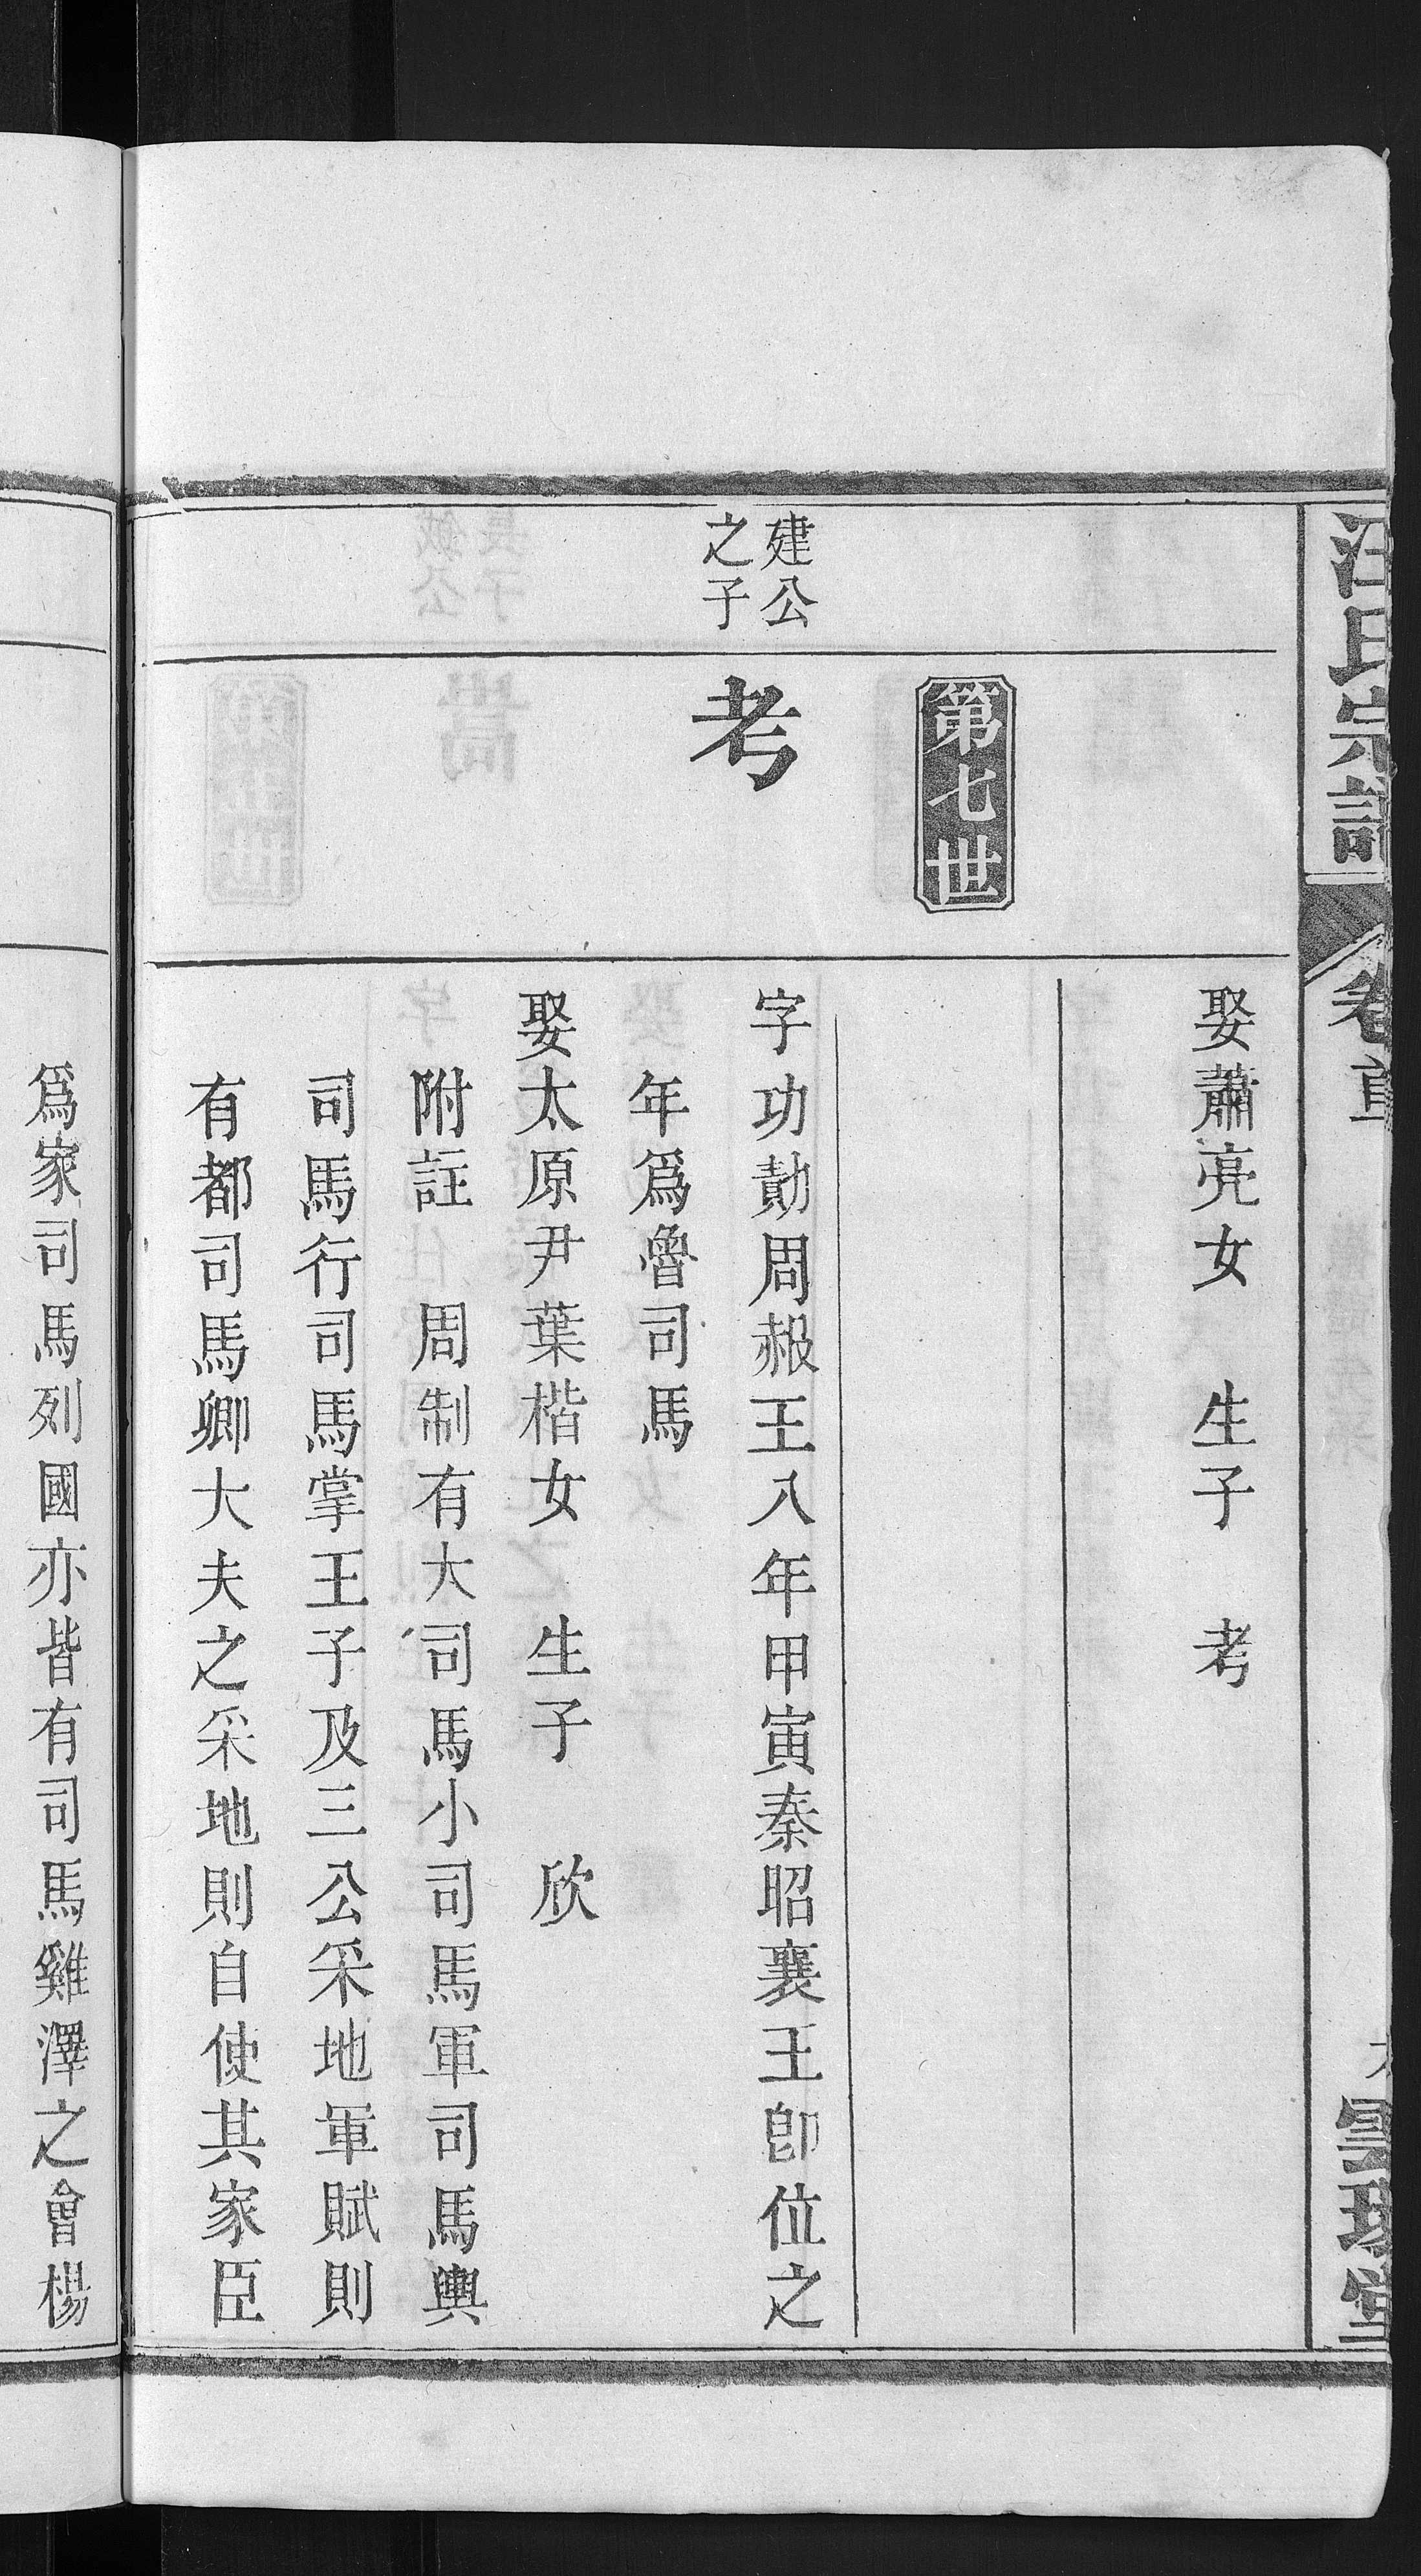 汪氏宗譜
卷首
雲璈堂
娶蕭亮女　生子　考
第七世
建公
之子
考
字功勣周赧王八年甲寅秦昭襄王卽位之
年爲魯司馬
娶太原尹葉楷女　生子　欣
附註　周制有大司馬小司馬軍司馬輿
司馬行司馬掌王子及三公采地軍賦則
有都司馬卿大夫之采地則自使其家臣
爲家司馬列國亦皆有司馬雞澤之會楊